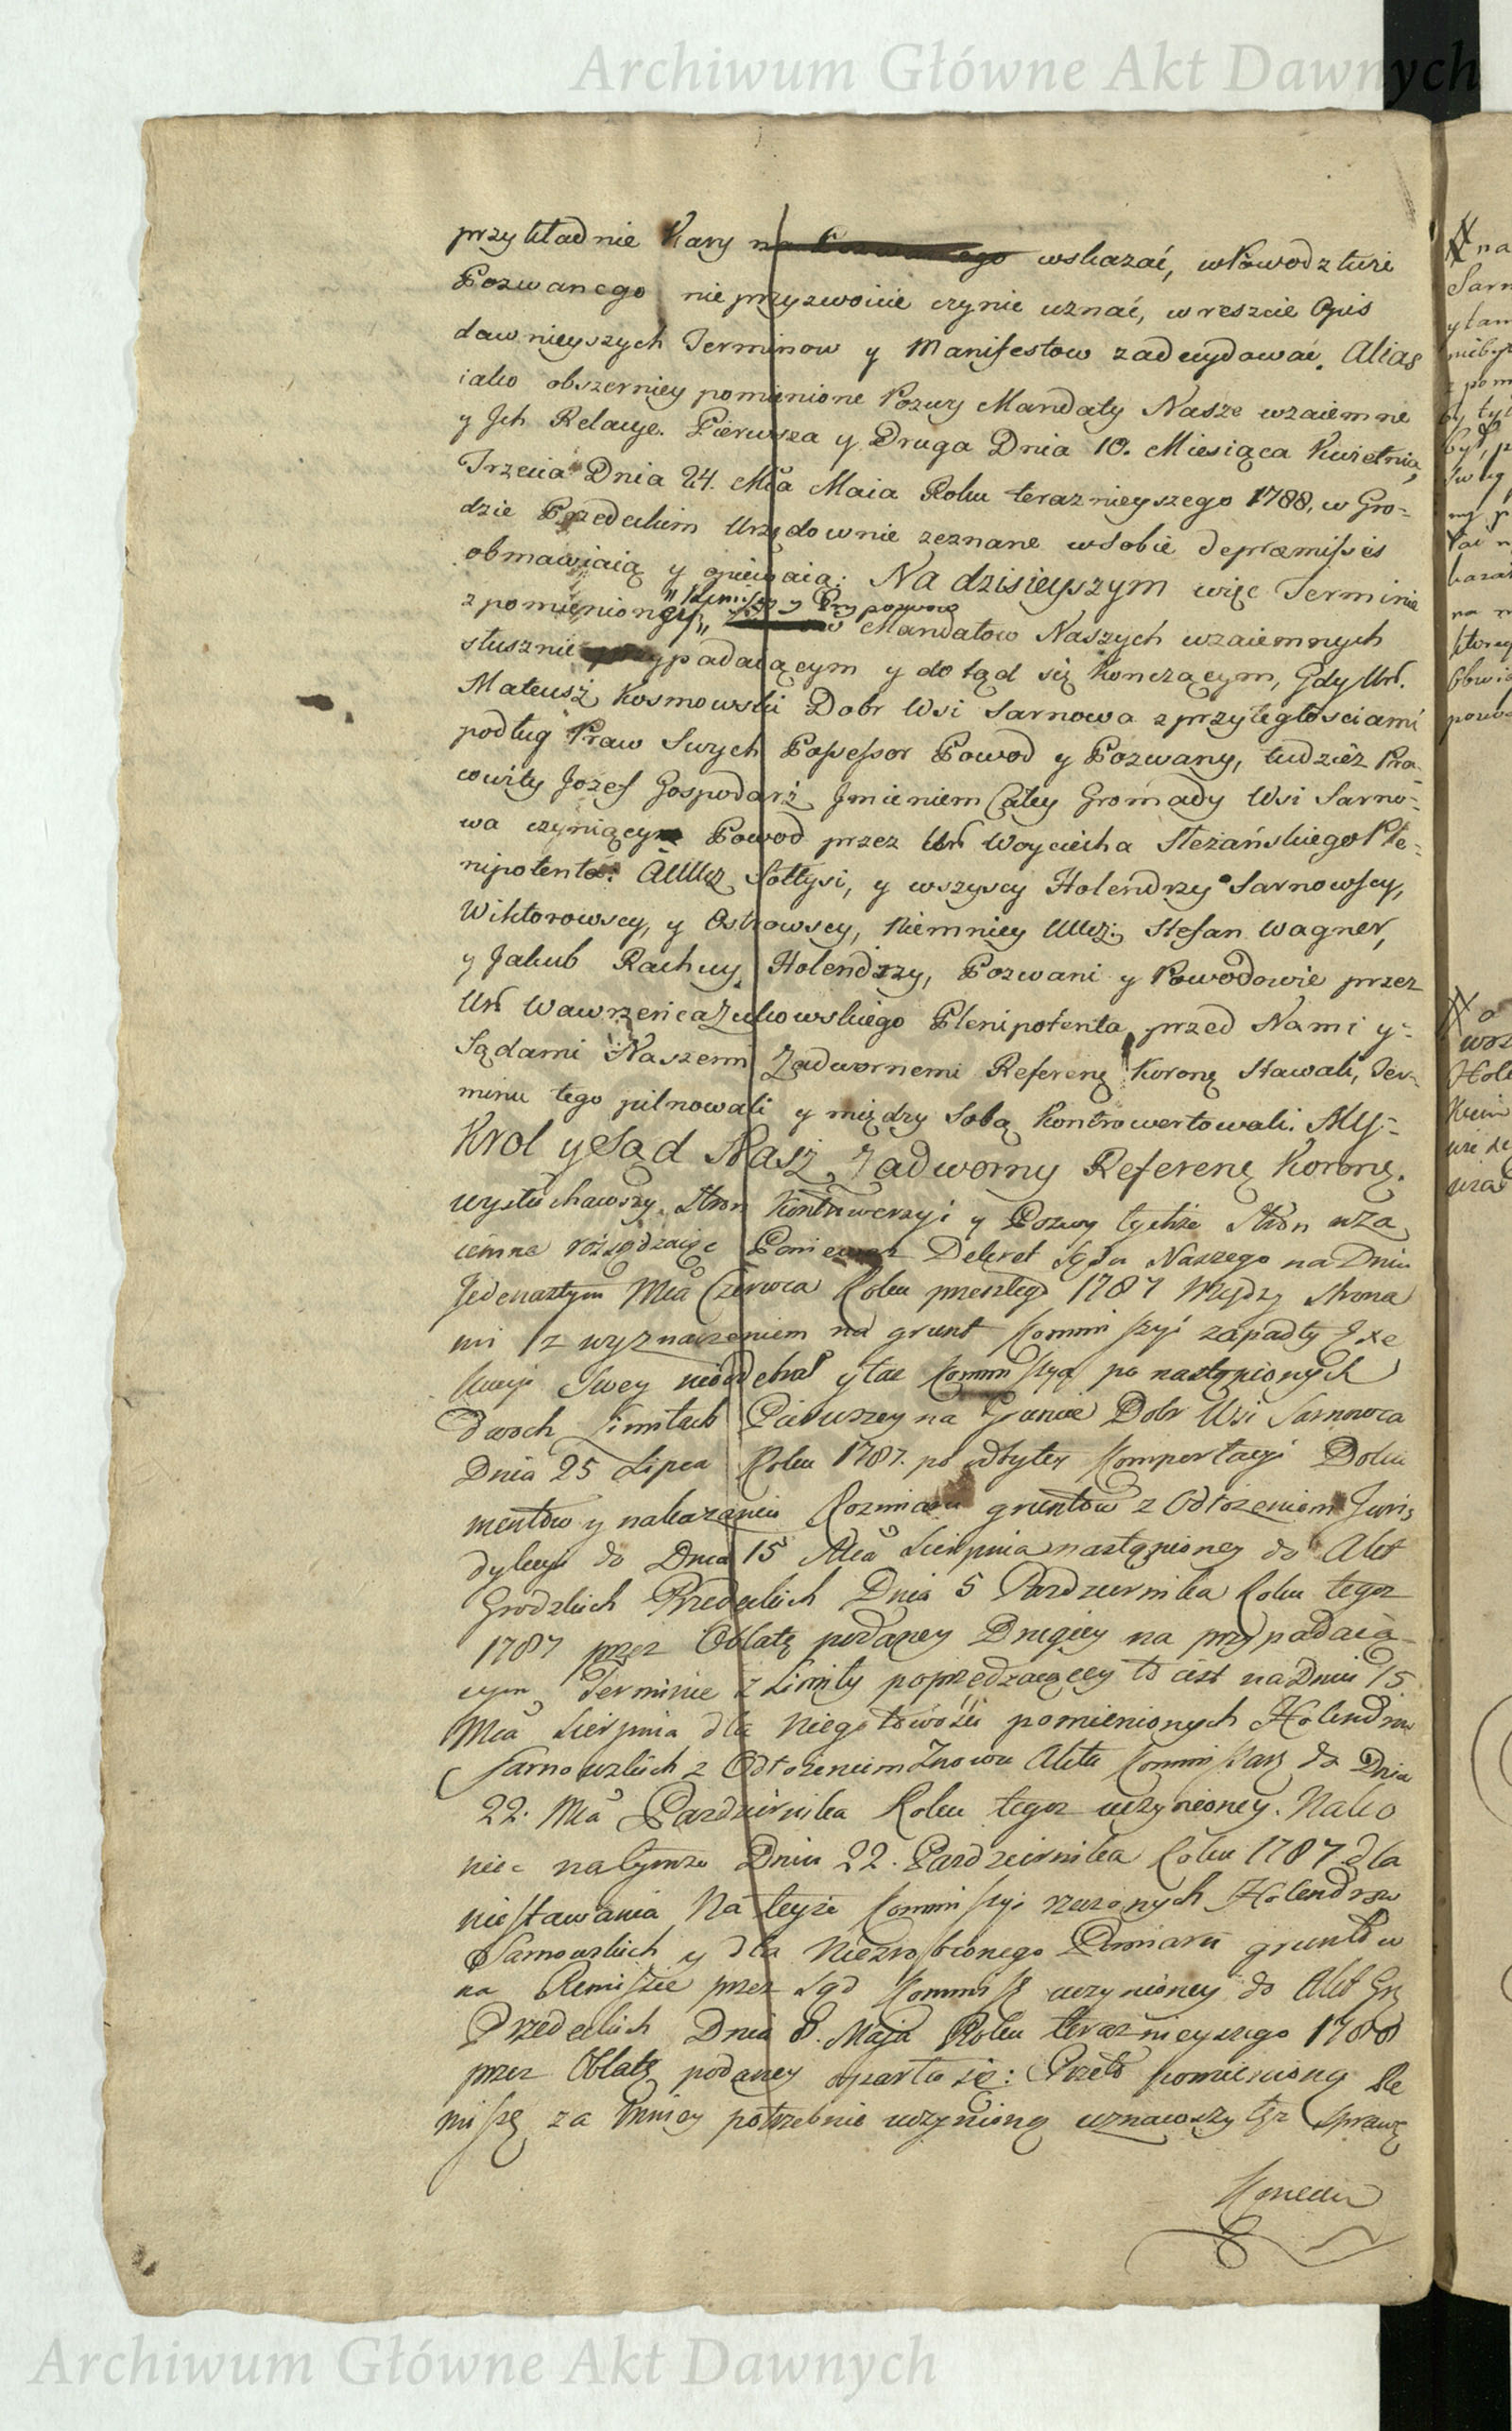 Archiwum Główne Akt Dawnych
przykładnie Kary na wskazać, w Powodztwie
Pozwanego nieprzyzwoicie czynie uznać, w reszcie Opis
dawnieyszych Terminow y Manifestow zadecydować. Alias
iako obszerniey pomienione Pozwy Mandaty Nasze wzaiemne
y Jch Relacye. Pierwsza y Druga Dnia 10. Miesiąca Kwietnia,
Trzecia Dnia 24. Mca Maia Roku teraznieyszego 1788, w Gro-
dzie Przedeckim Urzędownie zeznane w sobie de præmissis
obmawiaią y opiewaią: Na dzisieyszym więc Terminie
z pomienioney Remissy y Przypozwow Mandatow Naszych wzaiemnych
słusznie przypadaiącym y dotąd się Konczącym, Gdy Ur.
Mateusz Kosmowski Dobr Wsi Sarnowa z przyległosciami
podług Praw Swych Possessor Powod y Pozwany, tudzież Pra-
cowity Jozef Gospodarz Jmieniem Całey Gromady Wsi Sarno-
wa czyniący Powod przez Ur Woyciecha Steżańskiego Ple-
nipotenta: Sołtysi, y wszyscy Holendrzy Sarnowscy,
Wiktorowscy, y Ostrowscy, niemniey Stefan Wagner,
y Jakub Rachuy Holendrzy, Pozwani y Powodowie przez
Ur Wawrzenca Zukowskiego Plenipotenta, przed Nami y
Sądami Naszemi Zadwornemi Referenę Koronę Stawali, Ter-
minu tego pilnowali y między Sobą Kontrowertowali. My
Krol y Sąd Nasz Zadworny Referenę Koronę.
wysłuchawszy Stron Kontrowersyi y Pozwy tychże Stron wza
iemne rozsądzaiąc Poniewasz Dekret Sądu Naszego na Dniu
Jedenastym Mca Czerwca Roku przeszłego 1787 Między Strona
mi z wyznaczeniem na grunt Kommissyi zapadły Exe
kucyi Swey nieodebrał y taż Kommissya po nastąpionych
dwoch Limitach Pierwszey na Gruncie Dobr Wsi Sarnowa
Dnia 25 Lipca Roku 1787. po odbytey Komportacyi Doku
mentow y nakazaniu Rozmiaru gruntow z Odłożeniem Juris
dykcyi do Dnia 15 Mca Sierpnia nastąpioney do Akt
Grodzkich Przedeckich Dnia 5 Pazdziernika Roku tegoz
1787 przez Oblatę podaney Drugiey na przypadaią-
cym Terminie z Limity poprzedzaiącey to iest na Dniu 15
Mca Sierpnia dla niegotowości pomienionych Holendrow
Sarnowskich z Odłożeniem znowu Aktu Kommissarz do Dnia
22. Mca Pazdziernika Roku tegoz uczynioney. Nako
niec na tymze Dniu 22. Pazdziernika Roku 1787 dla
niestawania Na teyże Kommissyi rzeczonych Holendrow
Sarnowskich y dla Niezrobionego Pomiaru gruntow
na Remissie przez Sąd Kommiss uczynioney do Akt Grz
Przedeckich Dnia 8. Maja Roku teraznieyszego 1788
przez Oblatę podaney oparła się: Przeto pomienioną Re
missę za Mniey potrzebnie uczynioną uznawszy tęz sprawę
Archiwum Główne Akt Dawnych